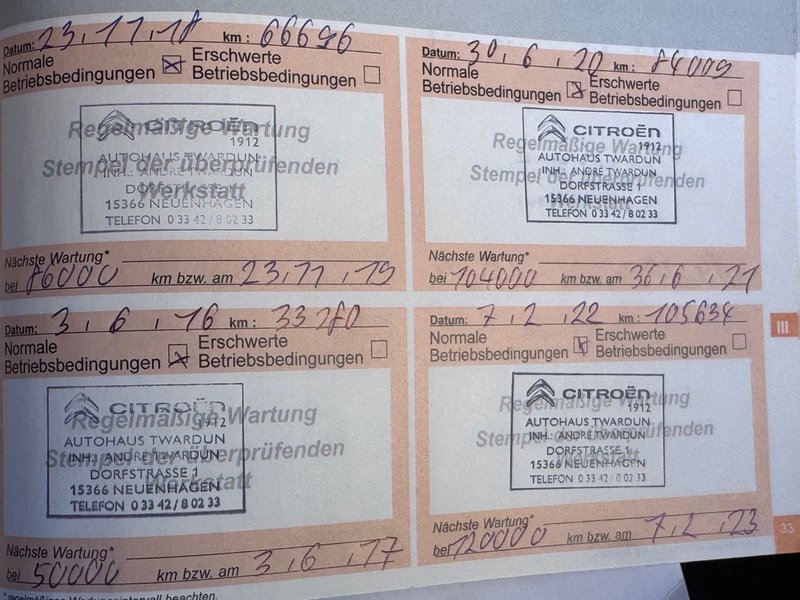 Datum: 23.11.18 km: 66696
Normale Betriebsbedingungen Erschwerte Betriebsbedingungen
Regelmäßige Wartung
Stempel der überprüfenden
Werkstatt
CITROËN
1912
AUTOHAUS TWARDUN
INH.: ANDRE TWARDUN
DORFSTRASSE 1
15366 NEUENHAGEN
TELEFON 0 33 42 / 8 02 33
Nächste Wartung*
bei 86000 km bzw. am 23.11.19
Datum: 30.6.20 km: 84009
Normale Betriebsbedingungen Erschwerte Betriebsbedingungen
Regelmäßige Wartung
Stempel der überprüfenden
Werkstatt
CITROËN
1912
AUTOHAUS TWARDUN
INH.: ANDRE TWARDUN
DORFSTRASSE 1
15366 NEUENHAGEN
TELEFON 0 33 42 / 8 02 33
Nächste Wartung*
bei 104000 km bzw. am 30.6.21
Datum: 3.6.16 km: 33280
Normale Betriebsbedingungen Erschwerte Betriebsbedingungen
Regelmäßige Wartung
Stempel der überprüfenden
Werkstatt
CITROËN
1912
AUTOHAUS TWARDUN
INH.: ANDRE TWARDUN
DORFSTRASSE 1
15366 NEUENHAGEN
TELEFON 0 33 42 / 8 02 33
Nächste Wartung*
bei 50000 km bzw. am 3.6.17
Datum: 7.2.22 km: 105634
Normale Betriebsbedingungen Erschwerte Betriebsbedingungen
Regelmäßige Wartung
Stempel der überprüfenden
Werkstatt
CITROËN
1912
AUTOHAUS TWARDUN
INH.: ANDRE TWARDUN
DORFSTRASSE 1
15366 NEUENHAGEN
TELEFON 0 33 42 / 8 02 33
Nächste Wartung*
bei 120000 km bzw. am 7.2.23
III
33
*regelmäßige Wartungsintervall beachten.